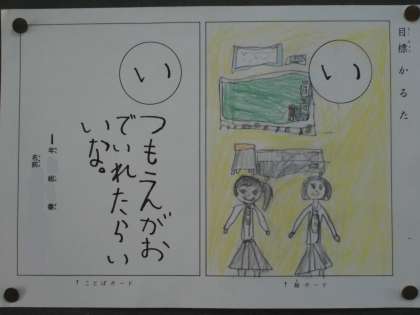 目標かるた
い
↑絵カード
い
つもえがお
でいれたらい
いな。
↑ことばカード